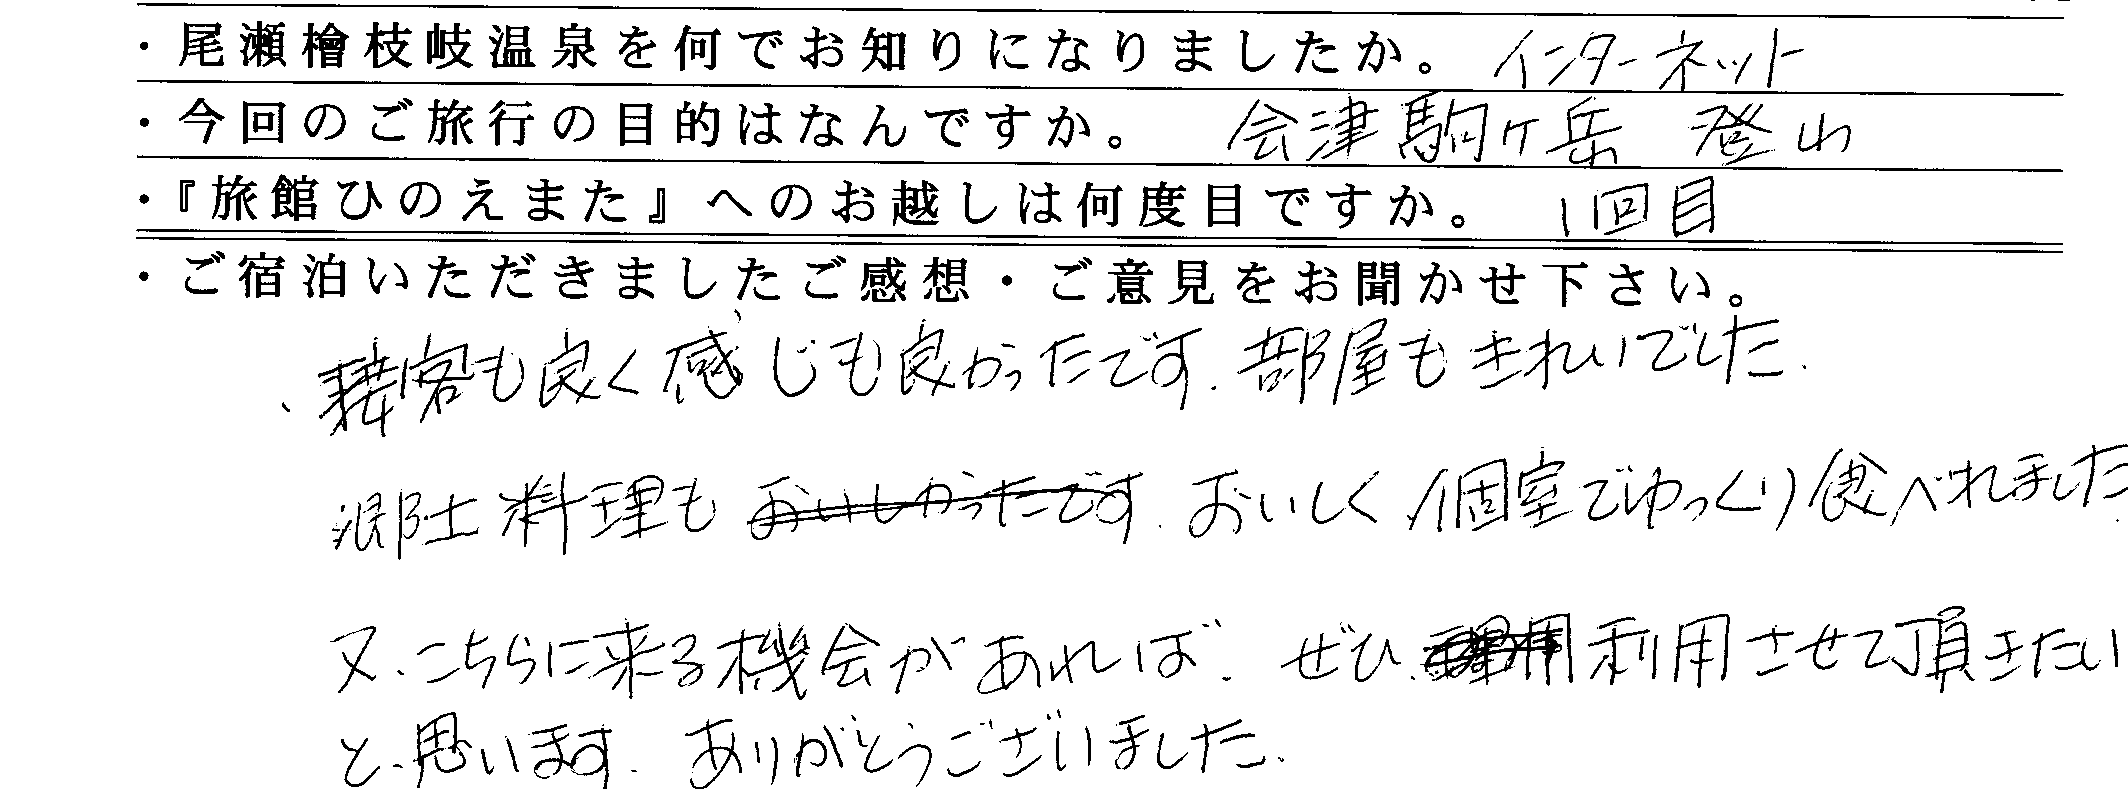 ・尾瀬檜枝岐温泉を何でお知りになりましたか。 インターネット
・今回のご旅行の目的はなんですか。 会津駒ヶ岳 登山
・『旅館ひのえまた』へのお越しは何度目ですか。 1回目
・ご宿泊いただきましたご感想・ご意見をお聞かせ下さい。
接客も良く感じも良かったです. 部屋もきれいでした.
郷土料理も おいしかったです. おいしく, 個室でゆっくり食べれました.
又、こちらに来る機会があれば、ぜひ 利用させて頂きたい
と思います. ありがとうございました.